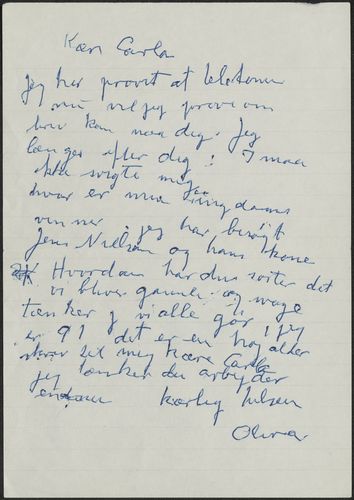 Kære Carla
Jeg har prøvet at telefonere
nu vil jeg prøve om
brev kan naa dig. Jeg
længes efter dig! I maa
ikke svigte mig
hvor er mine ungdoms
venner. jeg har besøgt
Jens Nielsen og hans kone
Hvordan har din søster det
vi bliver gamle. og
tænker j vi alle gør! jeg
er 91 det er en høj alder
skriv til mig kære Carla
jeg tænker du arbejder
endnu kærlig hilsen
Olivia